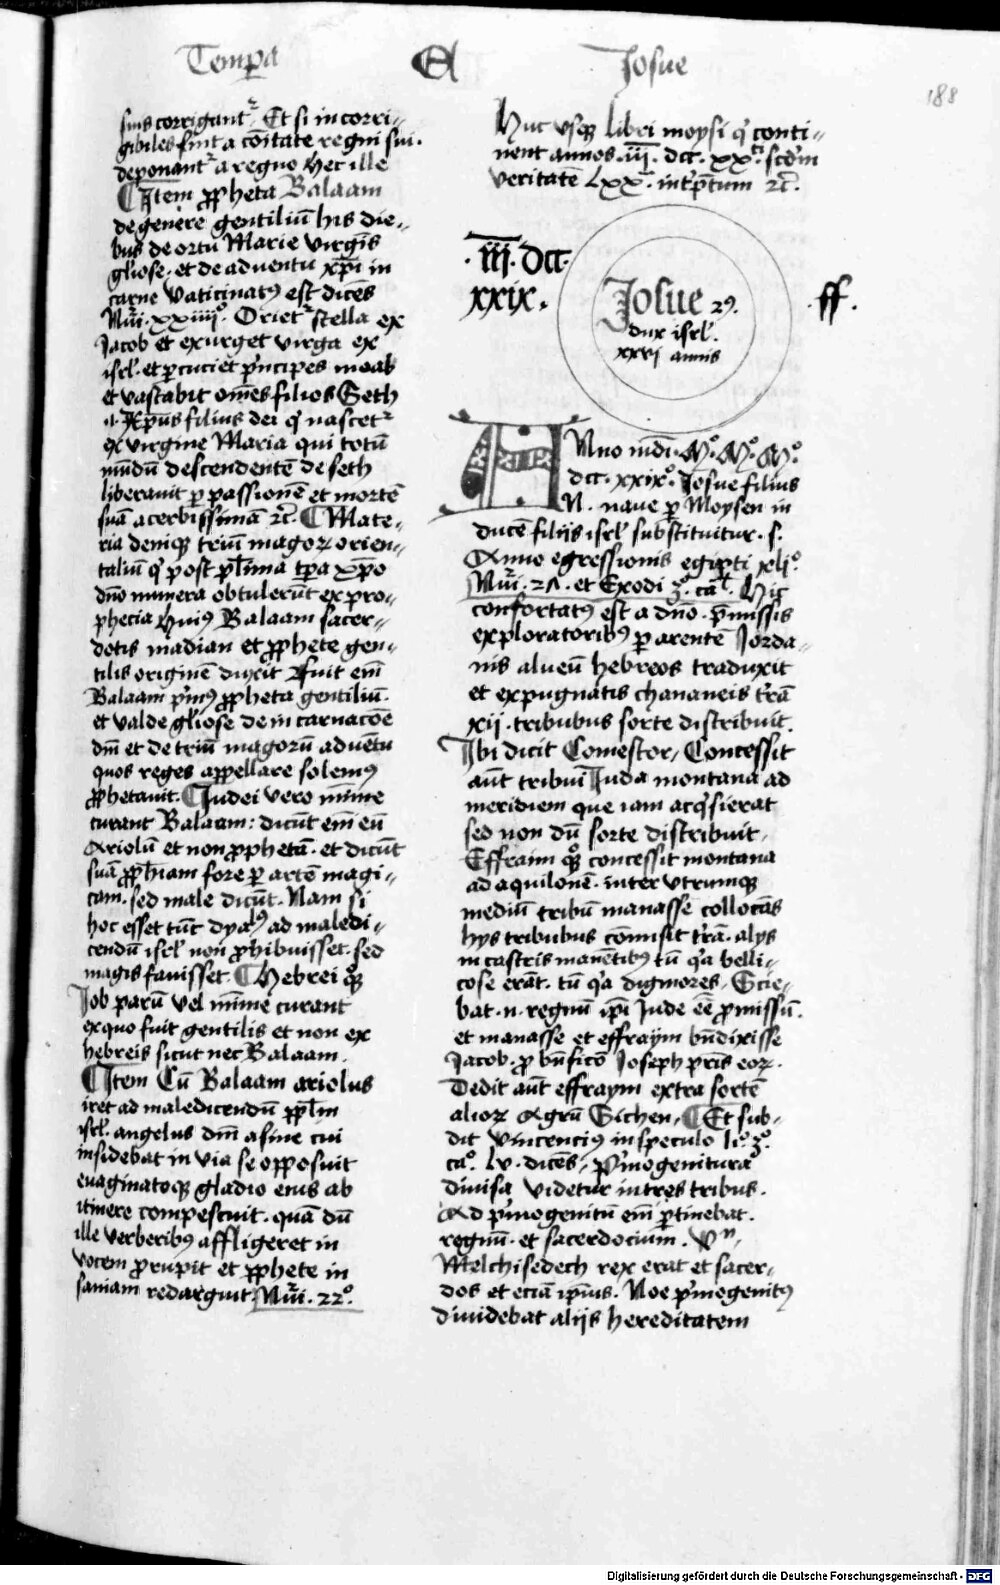 Tempa
A
Josue
188
suis corrigantr. Et si incorri⸗
gibiles sint a cōitate regni sui.
deponantr a regno hec ille
¶ Item ꝓpheta Balaam
de genere gentiliū his die⸗
bus de ortu Marie virgīs
gliose. et de aduentu xp̄i in
carne vaticinatꝰ est dicēs
Nūi. xxiiiiº. Orietr stella ex
Jacob et exurget virga ex
isrl̄. et ꝑcuciet pͥncipes moab
et vastabit om̄es filios Seth
.i. Xp̄us filius dei qͥ nascetr
ex virgine Maria qui totū
mūdū descendentē de seth
liberauit ꝑ passionē et mortē
suā acerbissimā ⁊c̄. ¶ Mate⸗
ria deniqꝫ triū magoꝝ orien⸗
taliū qͥ post pl̄ima tꝑa xp̄o
dn̄o munera obtulerūt ex pro⸗
phecia huiꝰ Balaam sacer⸗
dotis madian et ꝓphete gen⸗
tilis originē duxit Fuit em̄
Balaam pͥmꝰ ꝓpheta gentiliū
et valde gliose de in carnacōe
dn̄i et de triū magorū aduētu
quos reges appellare solemꝰ
ꝓphetauit. ¶ Judei vero mīime
curant Balaam: dicūt em̄ eū
Ariolū et non ꝓphetā. et dicūt
suā ꝓphiam fore ꝑ artē magi⸗
cam. sed male dicūt. Nam si
hoc esset tūc dyalꝰ ad maledi⸗
cendū isrl̄ non ꝓhibuisset. sed
magis fauisset. ¶ Hebrei qꝫ
Job parū vel mīime curant
ex quo fuit gentilis et non ex
hebreis sicut nec Balaam.
¶ Item Cū Balaam ariolus
iret ad maledicendū ppl̄m
isrl̄. angelus dn̄i asine cui
insidebat in via se opposuit
euaginatoqꝫ gladio eius ab
itinere compescuit. quā dū
ille verberibꝰ affligeret in
vocem ꝓrupit et ꝓphete in
saniam redarguit. Nūi. 22º.
Huc vsqꝫ libri moysi qͥ conti⸗
nent annos .iij. dcc. xx. scdm
veritatē Lxx. int̄p̄tum ⁊c̄.
.iij. dcc.
xxix.
Josue 29.
dux isrl̄.
xxvj annis
.ff.
ANno mūdi. Mº. Mº. Mº.
dcc. xxixº. Josue filius
N. naue ꝑ Moysen in
ducē filijs isrl̄ substituitur. s.
Anno egressionis egipti xljº.
Nūi. 27. et Exodi 3º. cal. Hic
confortatꝰ est a dn̄o. p̄missis
exploratoribꝰ ꝑ arentē Jorda⸗
nis alueū hebreos traduxit
et expugnatis chananeis t̄rā
xij. tribubus sorte distribuit.
Ibi dicit Comestor, Concessit
aūt tribui Juda montana ad
meridiem que iam acqͥsierat
sed non dū sorte distribuit,
Effraim qꝫ concessit montana
ad aquilonē. inter vtrumqꝫ
mediū tribū manasse collocās
hys tribubus cōmisit t̄rā. alys
in castris manētibꝰ tū qͥa belli⸗
cose erāt. tū qͥa digniores, Scie⸗
bat .n. regnū ip̄i Jude eē ꝓmissū.
et manasse et effraym bn̄dixisse
Jacob. ꝓ bn̄ficio Joseph pr̄is eoꝝ.
Dedit aūt effraym extra sortē
alioꝝ Agrū Sichen. ¶ Et sub⸗
dit vincenciꝰ in speculo li. 3º.
cº. Lv. dicēs, pͥmogenitura
diuisa videtur in tres tribus.
Ad pͥmogenitū em̄ ꝑtinebat.
regnū. et sacerdociū. Vn̄,
Melchisedech rex erat et sacer⸗
dos et eciā ip̄ius. Noe pͥmogenitꝰ
diuidebat alijs hereditatem
Digitalisierung gefördert durch die Deutsche Forschungsgemeinschaft - DFG